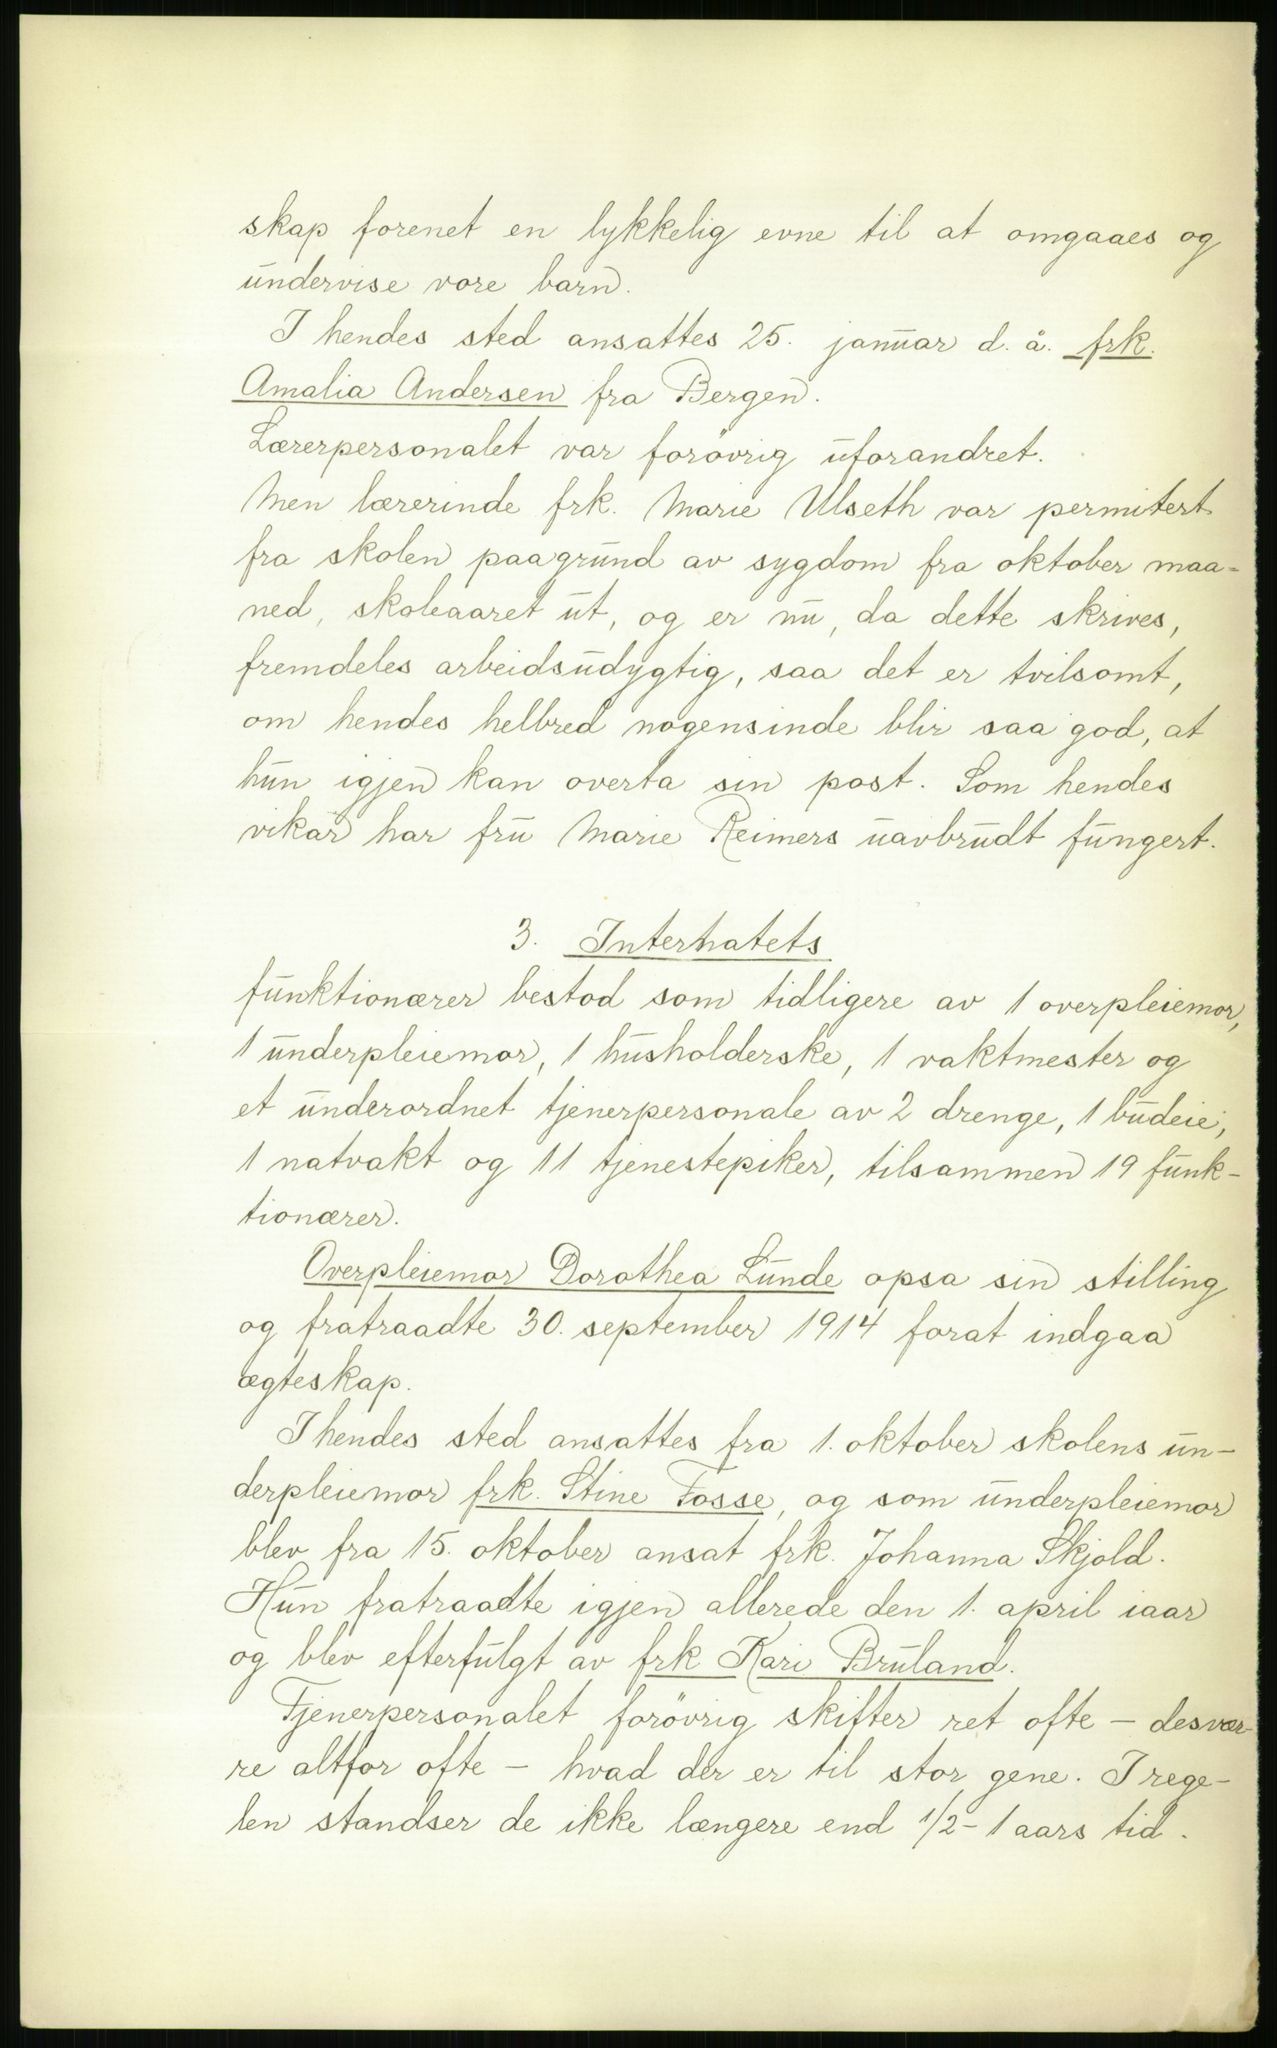 skap forenet en lykkelig evne til at omgaaes og
undervise vore barn.
I hendes sted ansattes 25. januar d. å. frk.
Amalia Andersen fra Bergen.
Lærerpersonalet var forövrig uforandret.
Men lærerinde frk. Marie Ulseth var permitert
fra skolen paagrund av sygdom fra oktober maa=
ned, skoleaaret ut, og er nu, da dette skrives,
fremdeles arbeidsudygtig, saa det er tvilsomt,
om hendes helbred nogensinde blir saa god, at
hun igjen kan overta sin post. Som hendes
vikar har fru Marie Reimers uavbrudt fungert.
3. Internatets
funktionærer bestod som tidligere av 1 overpleiemor,
1 underpleiemor, 1 husholderske, 1 vaktmester og
et underordnet tjenerpersonale av 2 drenge, 1 budeie,
1 natvakt og 11 tjenestepiker, tilsammen 19 funk-
tionærer.
Overpleiemor Dorothea Lunde opsa sin stilling
og fratraadte 30. september 1914 forat indgaa
ægteskap.
I hendes sted ansattes fra 1. oktober skolens un-
derpleiemor frk. Stine Fosse, og som underpleiemor
blev fra 15. oktober ansat frk. Johanna Skjold.
Hun fratraadte igjen allerede den 1. april iaar
og blev efterfulgt av frk Kari Bruland.
Tjenerpersonalet forövrig skifter ret ofte - desvær-
re altfor ofte - hvad der er til stor gene. I rege-
len standser de ikke længere end 1/2-1 aars tid.